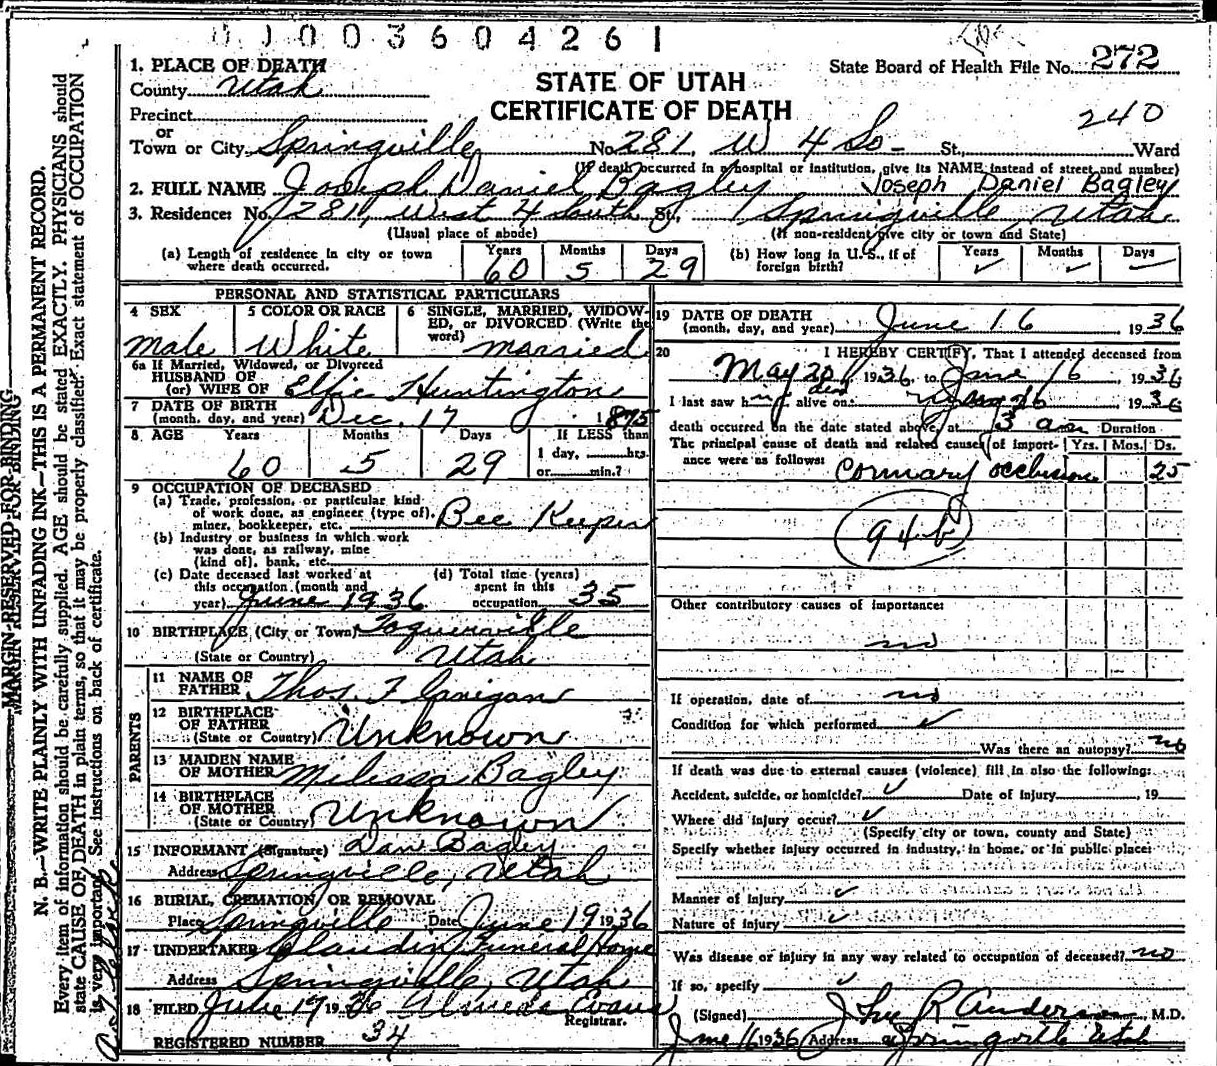 0 0 0 3 6 0 4 2 6 1
State Board of Health File No. 272
240
STATE OF UTAH
CERTIFICATE OF DEATH
1. PLACE OF DEATH
County Utah
Precinct
or
Town or City Springville No 281 W 4 So St, Ward
(If death occurred in a hospital or institution, give its NAME instead of street and number)
2. FULL NAME Joseph Daniel Bagley Joseph Daniel Bagley
3. Residence: No. 281, West 4 South St, Springville, Utah
(Usual place of abode) (If non-resident give city or town and State)
(a) Length of residence in city or town where death occurred. Years 60 Months 5 Days 29
(b) How long in U. S., if of foreign birth? Years ✓ Months ✓ Days
PERSONAL AND STATISTICAL PARTICULARS
4 SEX male
5 COLOR OR RACE White
6 SINGLE, MARRIED, WIDOWED, or DIVORCED (Write the word) married
6a If Married, Widowed, or Divorced
HUSBAND OF
(or) WIFE OF Effie Huntington
7 DATE OF BIRTH
(month, day, and year) Dec. 17 1875
8 AGE Years 60 Months 5 Days 29 If LESS than
1 day, hrs.
or min.?
9 OCCUPATION OF DECEASED
(a) Trade, profession, or particular kind
of work done, as engineer (type of),
miner, bookkeeper, etc. Bee Keeper
(b) Industry or business in which work
was done, as railway, mine
(kind of), bank, etc.
(c) Date deceased last worked at
this occupation (month and
year) June 1936
(d) Total time (years)
spent in this
occupation 35
10 BIRTHPLACE (City or Town) Toquerville
(State or Country) Utah
PARENTS
11 NAME OF
FATHER Thos. Flanigan
12 BIRTHPLACE
OF FATHER
(State or Country) Unknown
13 MAIDEN NAME
OF MOTHER Milissa Bagley
14 BIRTHPLACE
OF MOTHER
(State or Country) Unknown
15 INFORMANT (Signature) Dan Bagley
Address Springville, Utah
16 BURIAL, CREMATION, OR REMOVAL
Place Springville Date June 19 1936
17 UNDERTAKER Claudin Funeral Home
Address Springville, Utah
18 FILED June 19 1936 Almeda Evans
Registrar.
REGISTERED NUMBER 34
19 DATE OF DEATH
(month, day, and year) June 16 1936
20 I HEREBY CERTIFY, That I attended deceased from
May 20, 1936, to June 16, 1936
I last saw him alive on 1936
death occurred on the date stated above, at 3 am Duration
The principal cause of death and related causes of import- Yrs. Mos. Ds.
ance were as follows: Coronary occlusion 25
94b
Other contributory causes of importance:
no
If operation, date of no
Condition for which performed ✓
Was there an autopsy? no
If death was due to external causes (violence) fill in also the following:
Accident, suicide, or homicide? ✓ Date of injury , 19
Where did injury occur? ✓
(Specify city or town, county and State)
Specify whether injury occurred in industry, in home, or in public place:
Manner of injury ✓
Nature of injury ✓
Was disease or injury in any way related to occupation of deceased? no
If so, specify
(Signed) R Anderson, M.D.
June 16 1936 Address Springville Utah
MARGIN RESERVED FOR BINDING
N. B.—WRITE PLAINLY WITH UNFADING INK—THIS IS A PERMANENT RECORD.
Every item of information should be carefully supplied. AGE should be stated EXACTLY. PHYSICIANS should
state CAUSE OF DEATH in plain terms, so that it may be properly classified. Exact statement of OCCUPATION
is very important. See instructions on back of certificate.